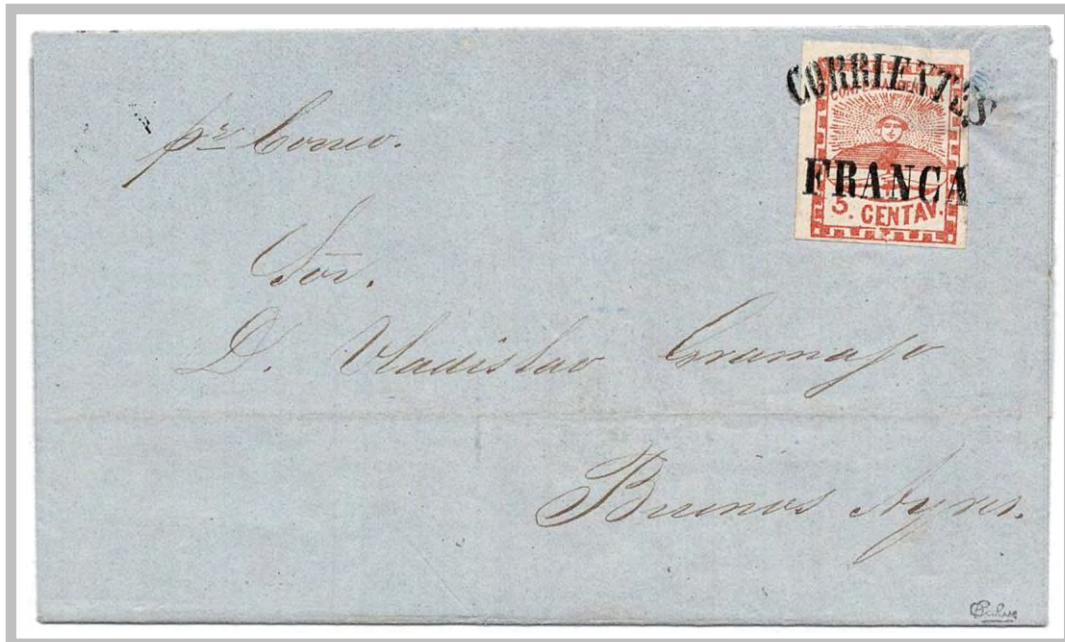 CORRIENTES
FRANCA
5. CENTAV.
pr Correo.
Sor.
D. Vladislao Gramajo
Buenos Ayres.